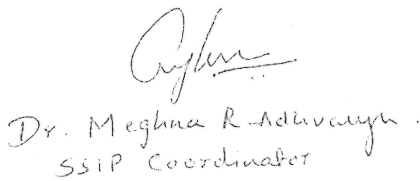 Dr. Meghna R. Adhvaryu.
SSIP Coordinator